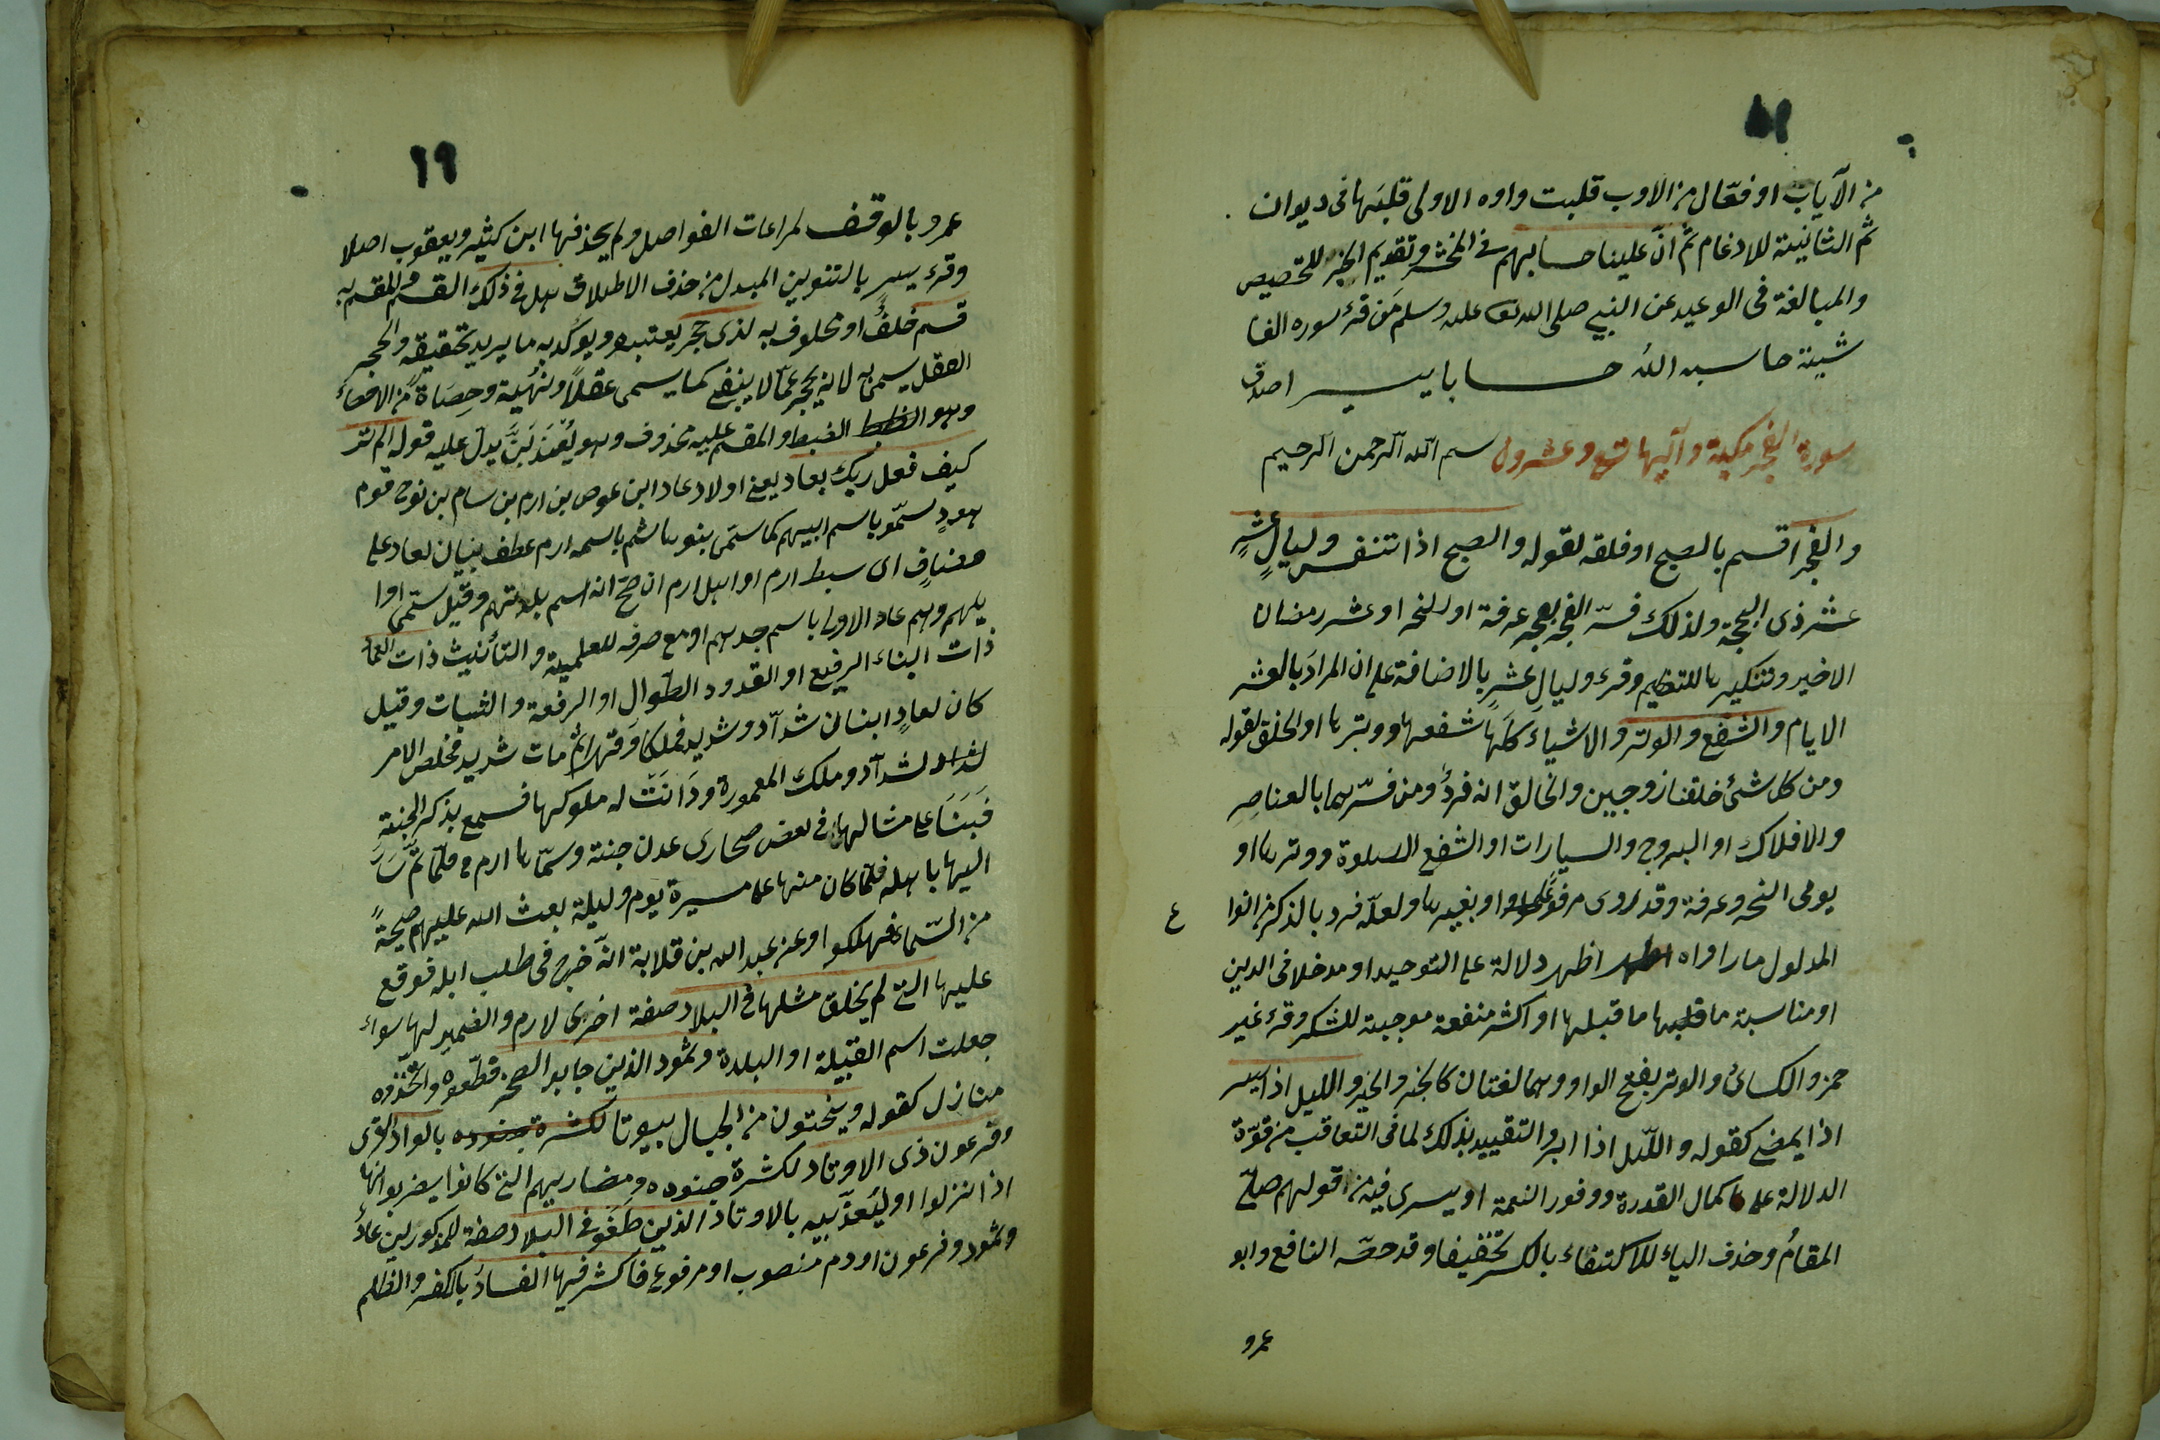 ١٨
من الآياب او فعّال من الاوب قلبت واوه الاولى قلبَها فى ديوان
ثم الثانية للادغام ثم انّ علينا حسابهم فى المحشر وتقديم الخبر للتخصيص
والمبالغة فى الوعيد عن النبى صلى الله تعا عليه وسلم مَن قرء سوره الغا
شية حاسبه الله حسابا يسيرا صدق
سورة الفجر مكية وآيها تسع وعشرون بسم الله الرحمن الرحيم
والفجر اقسم بالصبح او فلقه لقوله والصبح اذا تنفس وليالٍ عشرٍ
عشر ذى الحجة ولذلك فسّر الفجر بفجر عرفة او النحر او عشر رمضان
الاخير وتنكيرها للتعظيم وقرء وليالِ عشرٍ بالاضافة على ان المرادَ بالعشر
الايام والشفع والوتر والاشياءَ كلَها شفعها ووترها او الخلق لقوله
ومن كل شئ خلقنا زوجين والخالق انه فردٌ ومن فسّرهما بالعناصر
والافلاك او البروج والسيارات او الشفع الصلوة ووترها او
يومى النحر وعرفة وقد روى مرفوعًا او بغيرها ولعلّه فرد بالذكر انوا
ع
المدلول ما راواه اظهر دلالة على التوحيد او مدخلا فى الدين
او مناسبة ما قبلها ما قبلها او اكثر منفعة موجبة للشكر وقرء غير
حمز والكسائ والوتر بفتح الواو وهما لغتان كالحبر والحبر والليل اذا يسر
اذا يمضى كقوله والليل اذا ادبر والتقييد بذلك لما فى التعاقب من قوّة
الدلالة على كمال القدرة ووفور النعمة او يسرى فيه من قولهم صلّى
المقامُ وحذف الياء للاكتفاء بالكسر تخفيفا وقد خصّه النافع وابو
عمرو
١٩
عمرو بالوقف لمراعات الفواصل ولم يحذفها ابن كثير ويعقوب اصلا
وقرء يسرٍ بالتنوين المبدل من حذف الاطلاق هل فى ذلك القسم والمقسم به
قسم خلفٌ او محلوف به لذى حجر يعتبره ويوكّد به ما يريد تحقيقه والحجر
العقل سمى به لانه يحجر عمّا لا ينبغى كما يسمى عقلاً ونهية وحصاةً من الاحصاء
وهو الضبط والمقسم عليه محذوف وهو ليُعَذّبَنَّ يدلّ عليه قوله الم تر
كيف فعل ربك بعاد يعنى اولاد عاد ابن عوص بن ارم بن سام بن نوح قوم
هودٍ سمّو باسم ابيهم كما سمّى بنو هاشم باسمه ارم عطف بيان لعاد على
مضافٍ اى سبط ارم او اهل ارم ان صحّ انه اسم بلدتهم وقيل سمّى اوا
يلهم وهم عاد الاولى باسم جدهم او مع صرفه للعلمية والتأنيث ذات العماد
ذات البناء الرفيع او القدود الطّوال او الرفعة والثبات وقيل
كان لعادٍ ابنان شدّآد وشديد فملكا وقهرا ثم مات شديد فخلص الامر
لشدّآد وملك المعمورة ودَانَتْ له ملوكها فسمع بذكر الجنة
فَبَنَا على مثالها فى بعض صحارى عدن جنة وسمّاها ارم فلمّا تمّ سَارَ
اليها باهله فلمّا كان منها على مسيرة يوم وليلة بعث الله عليهم صيحةً
من السّماء فهلكوا وعن عبد الله بن قلابة انّه خرج فى طلب ابله فوقع
عليها التى لم يخلق مثلها فى البلاد صفة اخرى لارم والضمير لها سواء
جعلت اسم القبيلة او البلدة وثمود الذين جابو الصخر قطعوه واتّخذوه
منازل كقوله وينحتون من الجبال بيوتا لكثرة جنوده بالواد القرى
وفرعون ذى الاوتاد لكثرة جنوده ومضاربهم التى كانوا يضربوانها
اذا نزلوا او ليُعَذّبيه بالاوتاد الذين طَغَو فى البلاد صفة للمذكورين عادٌ
وثمود وفرعون او ذم منصوب او مرفوع فاكثر فيها الفسادُ بالكفر والظلم